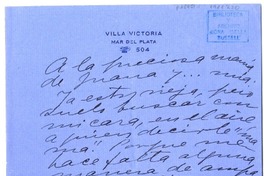 VILLA VICTORIA
MAR DEL PLATA
☎ 504
BIBLIOTECA
A la preciosa mamá
de Juana y... mía.
Ya estoy vieja, pero
suelo buscar con
mi cara, en el aire
a quien decirle "ma
má". Porque me
hace falta alguna
manera de ampa